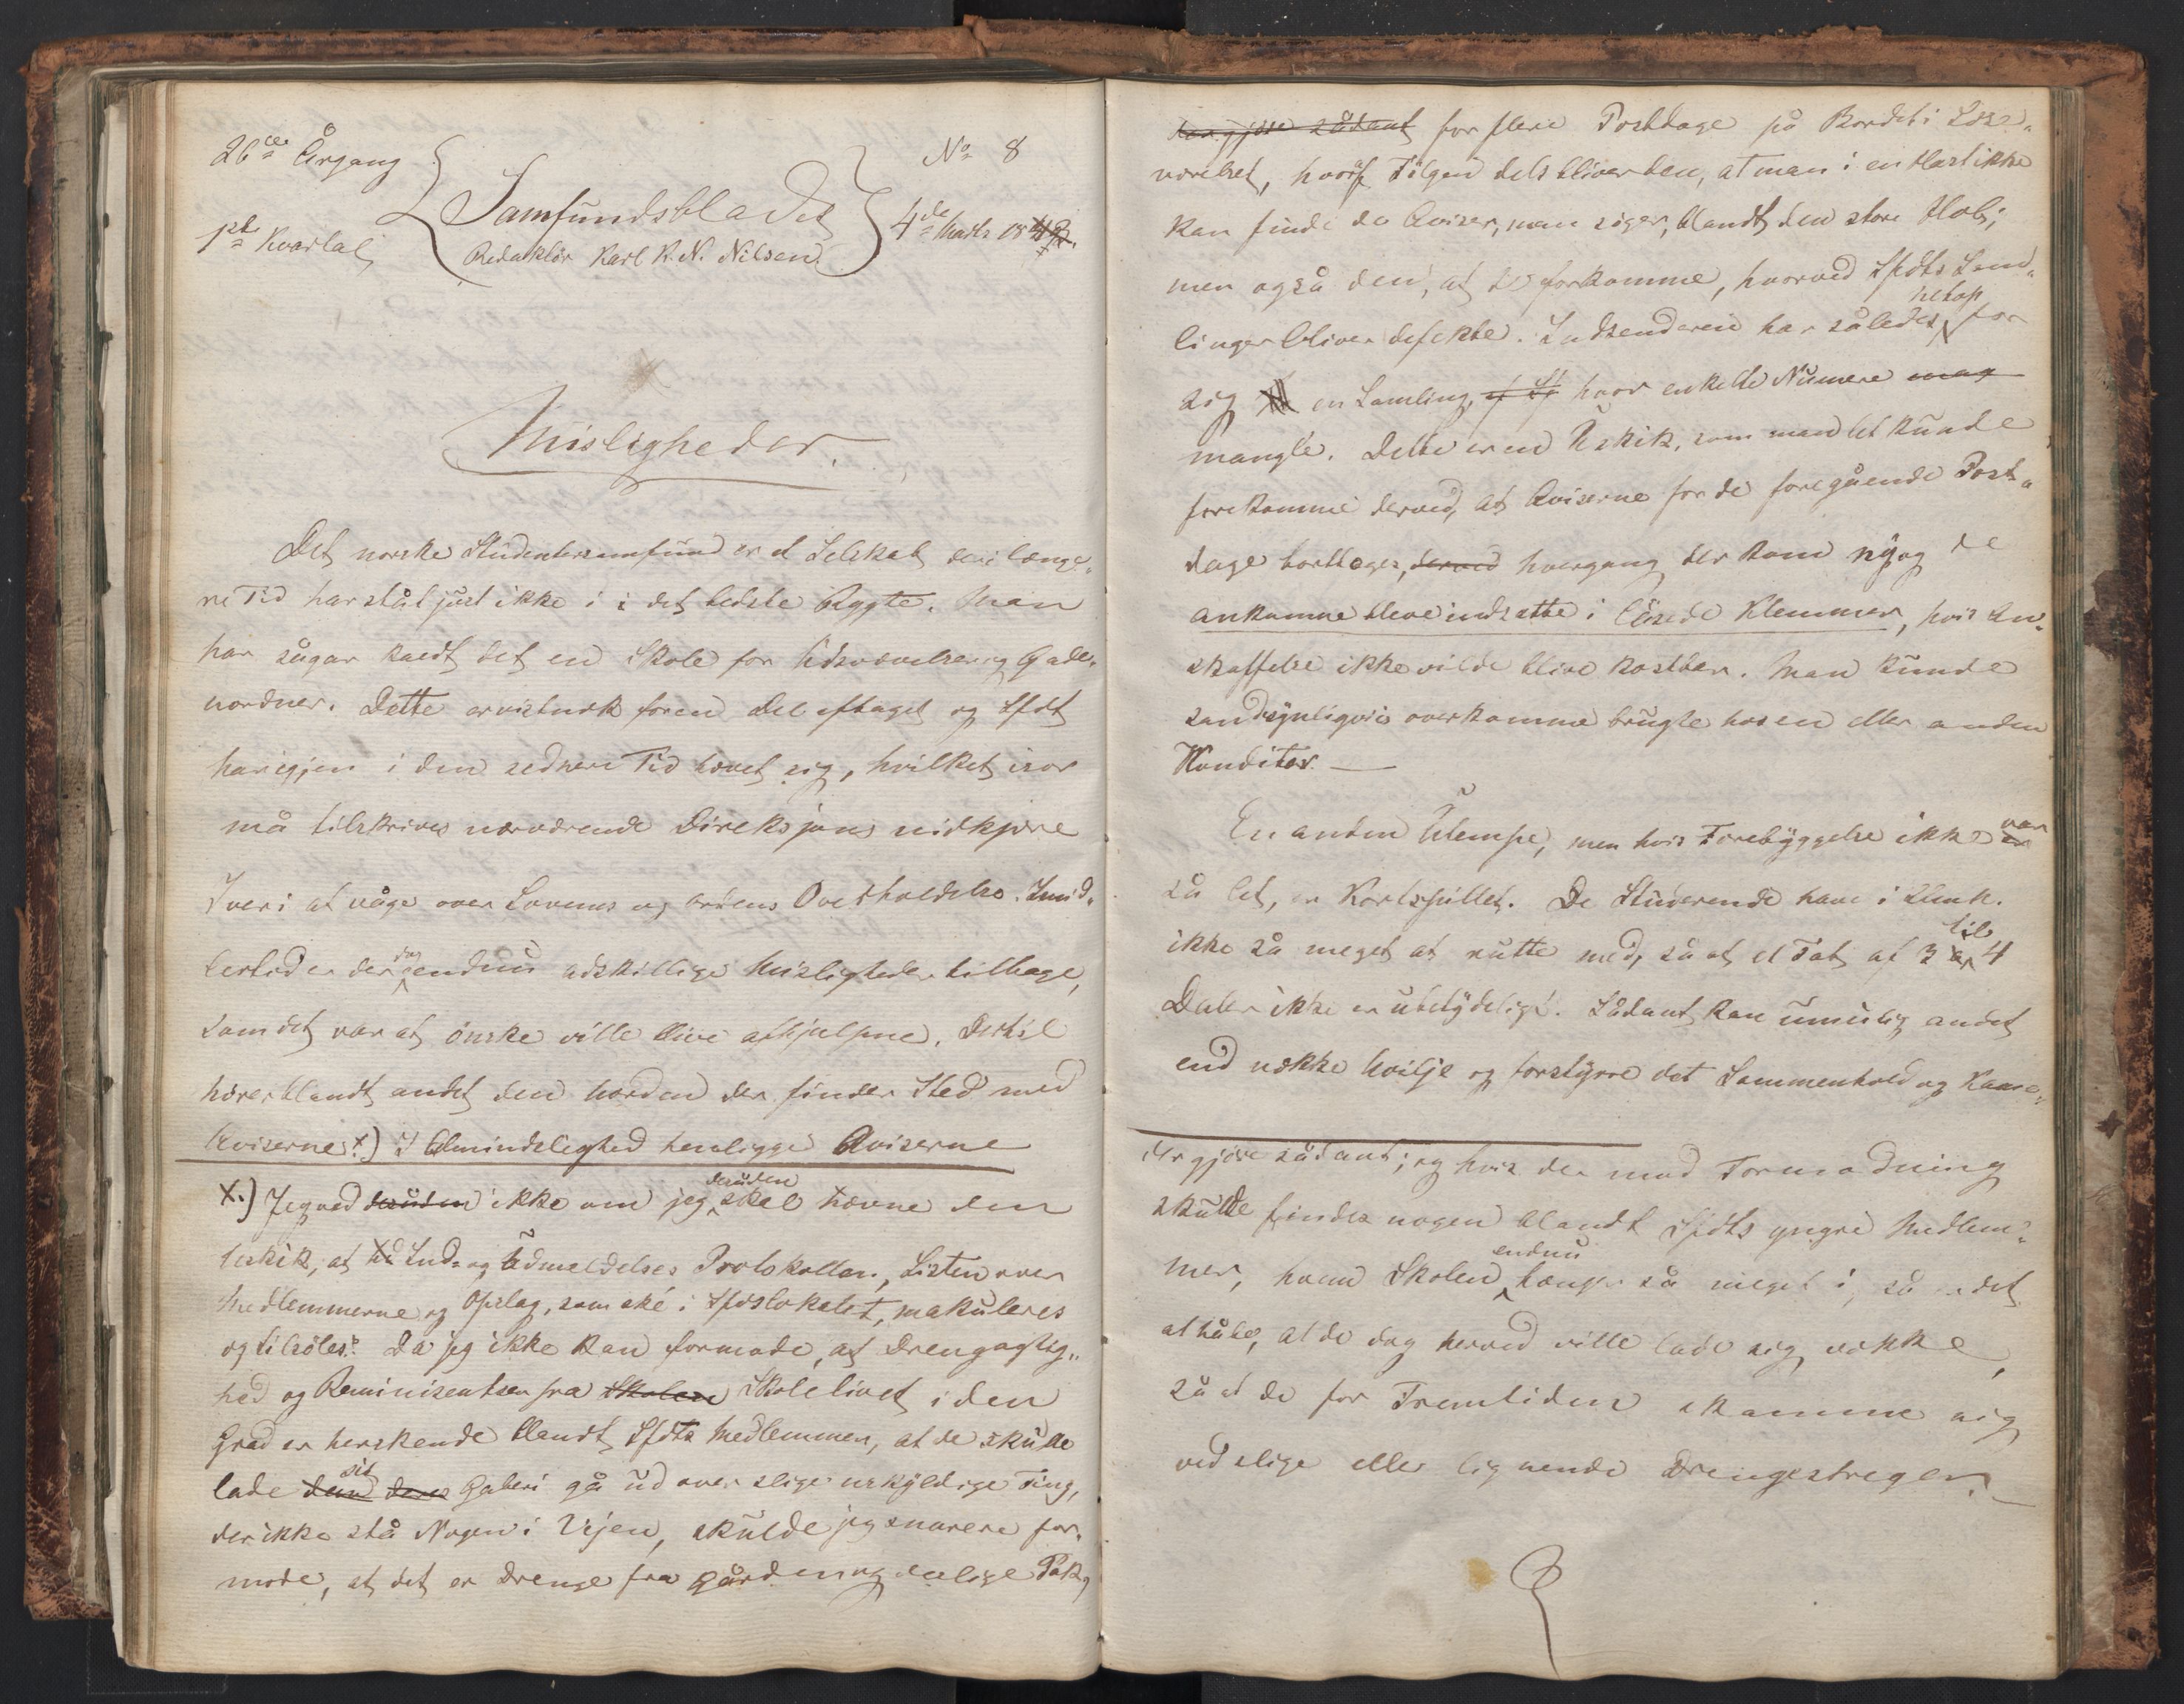 26de Årgang
No 8
Samfundsbladet
4de Marts 18
1ste Kvartal
Redaktör Karl K. N. Nilsen
Misligheder.
Det norske Studentersamfund er et Selskab, der i længe„
re Tid har ståt just ikke i i det bedste Rygte. Man
har sågar kaldt det en Skole for Udsvævelser og Gade„
uordner. Dette er vistnok for en Del aftaget og Sfdt
har igjen i den sednere Tid hævet sig, hvilket især
må tilskrives nærværende Direksjons nidkjære
Iver i at våge over Lovenes og Ordens Overholdelse. Imid„
lertid er der dog endnu adskillige Misligheder tilbage,
som det var at önske ville blive afhjulpne. Dertil
hörer blandt andet den Uorden der finder Sted med
Aviserne x) I Almindelighed henligge Aviserne
x.) Jeg ved desuden ikke om jeg desuden skal nævne den
Uskik, at Ind- og Udmeldelses Protokollen, Listen over
Medlemmerne og Opslag, som ske i Sfdslokalet, makuleres
og tilsöles. Da jeg ikke kan formode, at Drengagtig„
hed og Reminisentser fra Skolen Skolelivet i den
Grad er herskende blandt Sfdts Medlemmer, at de skulle
lade den deres sit Galleri gå ud over slige uskyldige Ting,
der ikke stå Nogen i Vejen, skulde jeg snarere for„
mode, at det er Drenge fra gården og deslige Pak,
der gjöre sådant for flere Postdage på Bordet i Læse„
værelset, hvoraf Fölgen dels bliver den, at man i en Hast ikke
kan finde de Aviser, man söger, blandt den store Hob;
men også den, at de forkomme, hvorved Sfdts Sam„
linger bliver defekte. Indsenderen har således netop for
sig en Samling, hvor enkelte Numere mag
mangle. Dette er en Uskik, som man let kunde
forekomme derved, at Aviserne for de foregående Post„
dage borttoges, derved hvergang der kom ny og de
ankomne bleve indsatte i låsede Klemmer, hvis An„
skaffelse ikke vilde blive kostbar. Man kunde
sandsynligvis overkomme brugte hos en eller anden
Konditor. —
En anden Ulempe, men hvis Forebyggelse ikke er var
så let, er Kortspillet. De Studerende have i Alm.
ikke så meget at rutte med, så at et Tab af 3 a til 4
Daler ikke er ubetydeligt. Sådant kan umulig andet
end vække Uvilje og forstyrre det Sammenhold og Kame„
der gjöre sådant; og hvis der mod Formodning
skulde findes nogen blandt Sfdts yngre Medlem„
mer, hvem Skolen endnu hænger så meget i, så er det
at håbe, at de dog herved ville lade sig vække,
så at de for Fremtiden skamme sig
ved slige eller lignende Drengestreger. —